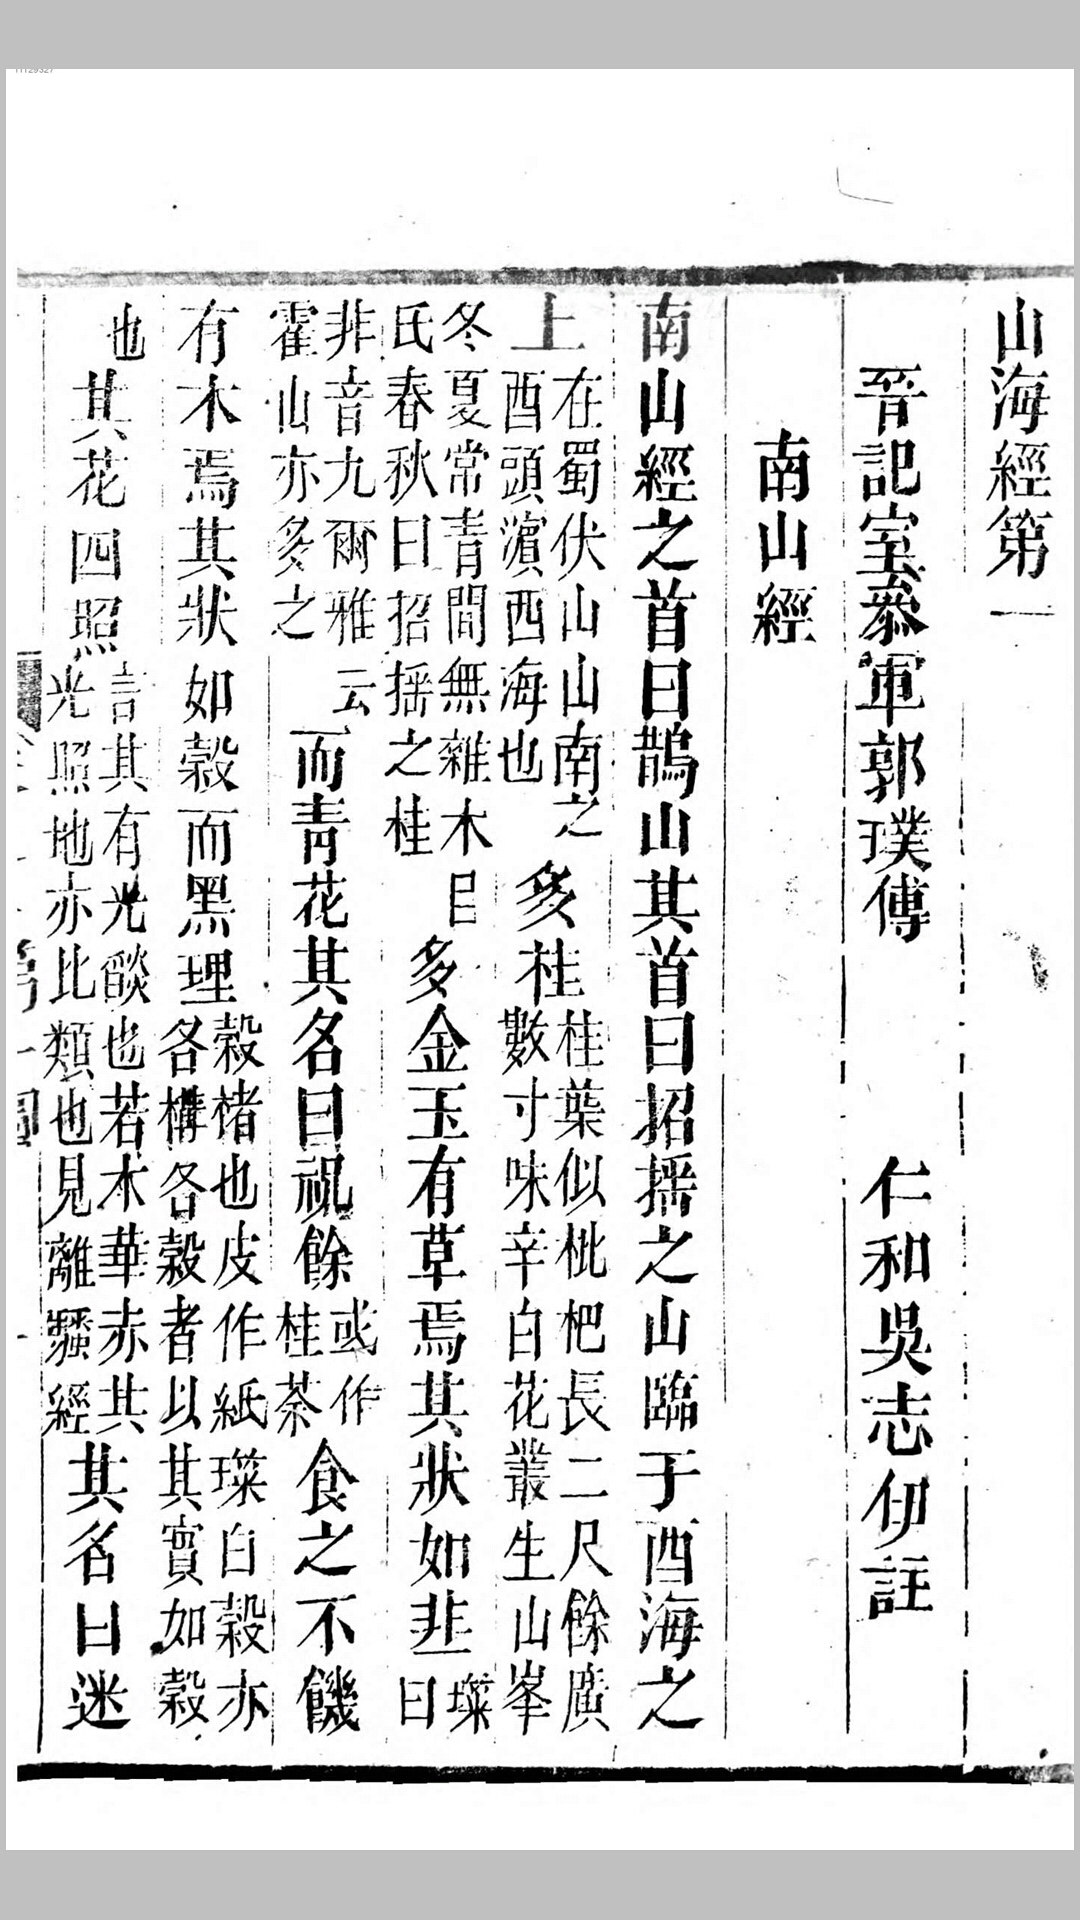 山海經第一
晉記室參軍郭璞傳 仁和吳志伊註
南山經
南山經之首曰鵲山其首曰招搖之山臨于西海之
上
在蜀伏山山南之
西頭濵西海也
多桂
桂葉似枇杷長二尺餘廣
數寸味辛白花叢生山峯
冬夏常青間無雜木呂
氏春秋曰招搖之桂
多金玉有草焉其狀如韭
璨
曰
非音九爾雅云
霍山亦多之
而青花其名曰祝餘
或作
桂荼
食之不饑
有木焉其狀如榖而黑理
榖楮也皮作紙璨曰榖亦
名構名榖者以其實如榖
也
其花四照
言其有光燄也若木華赤其
光照地亦比類也見離騷經
其名曰迷